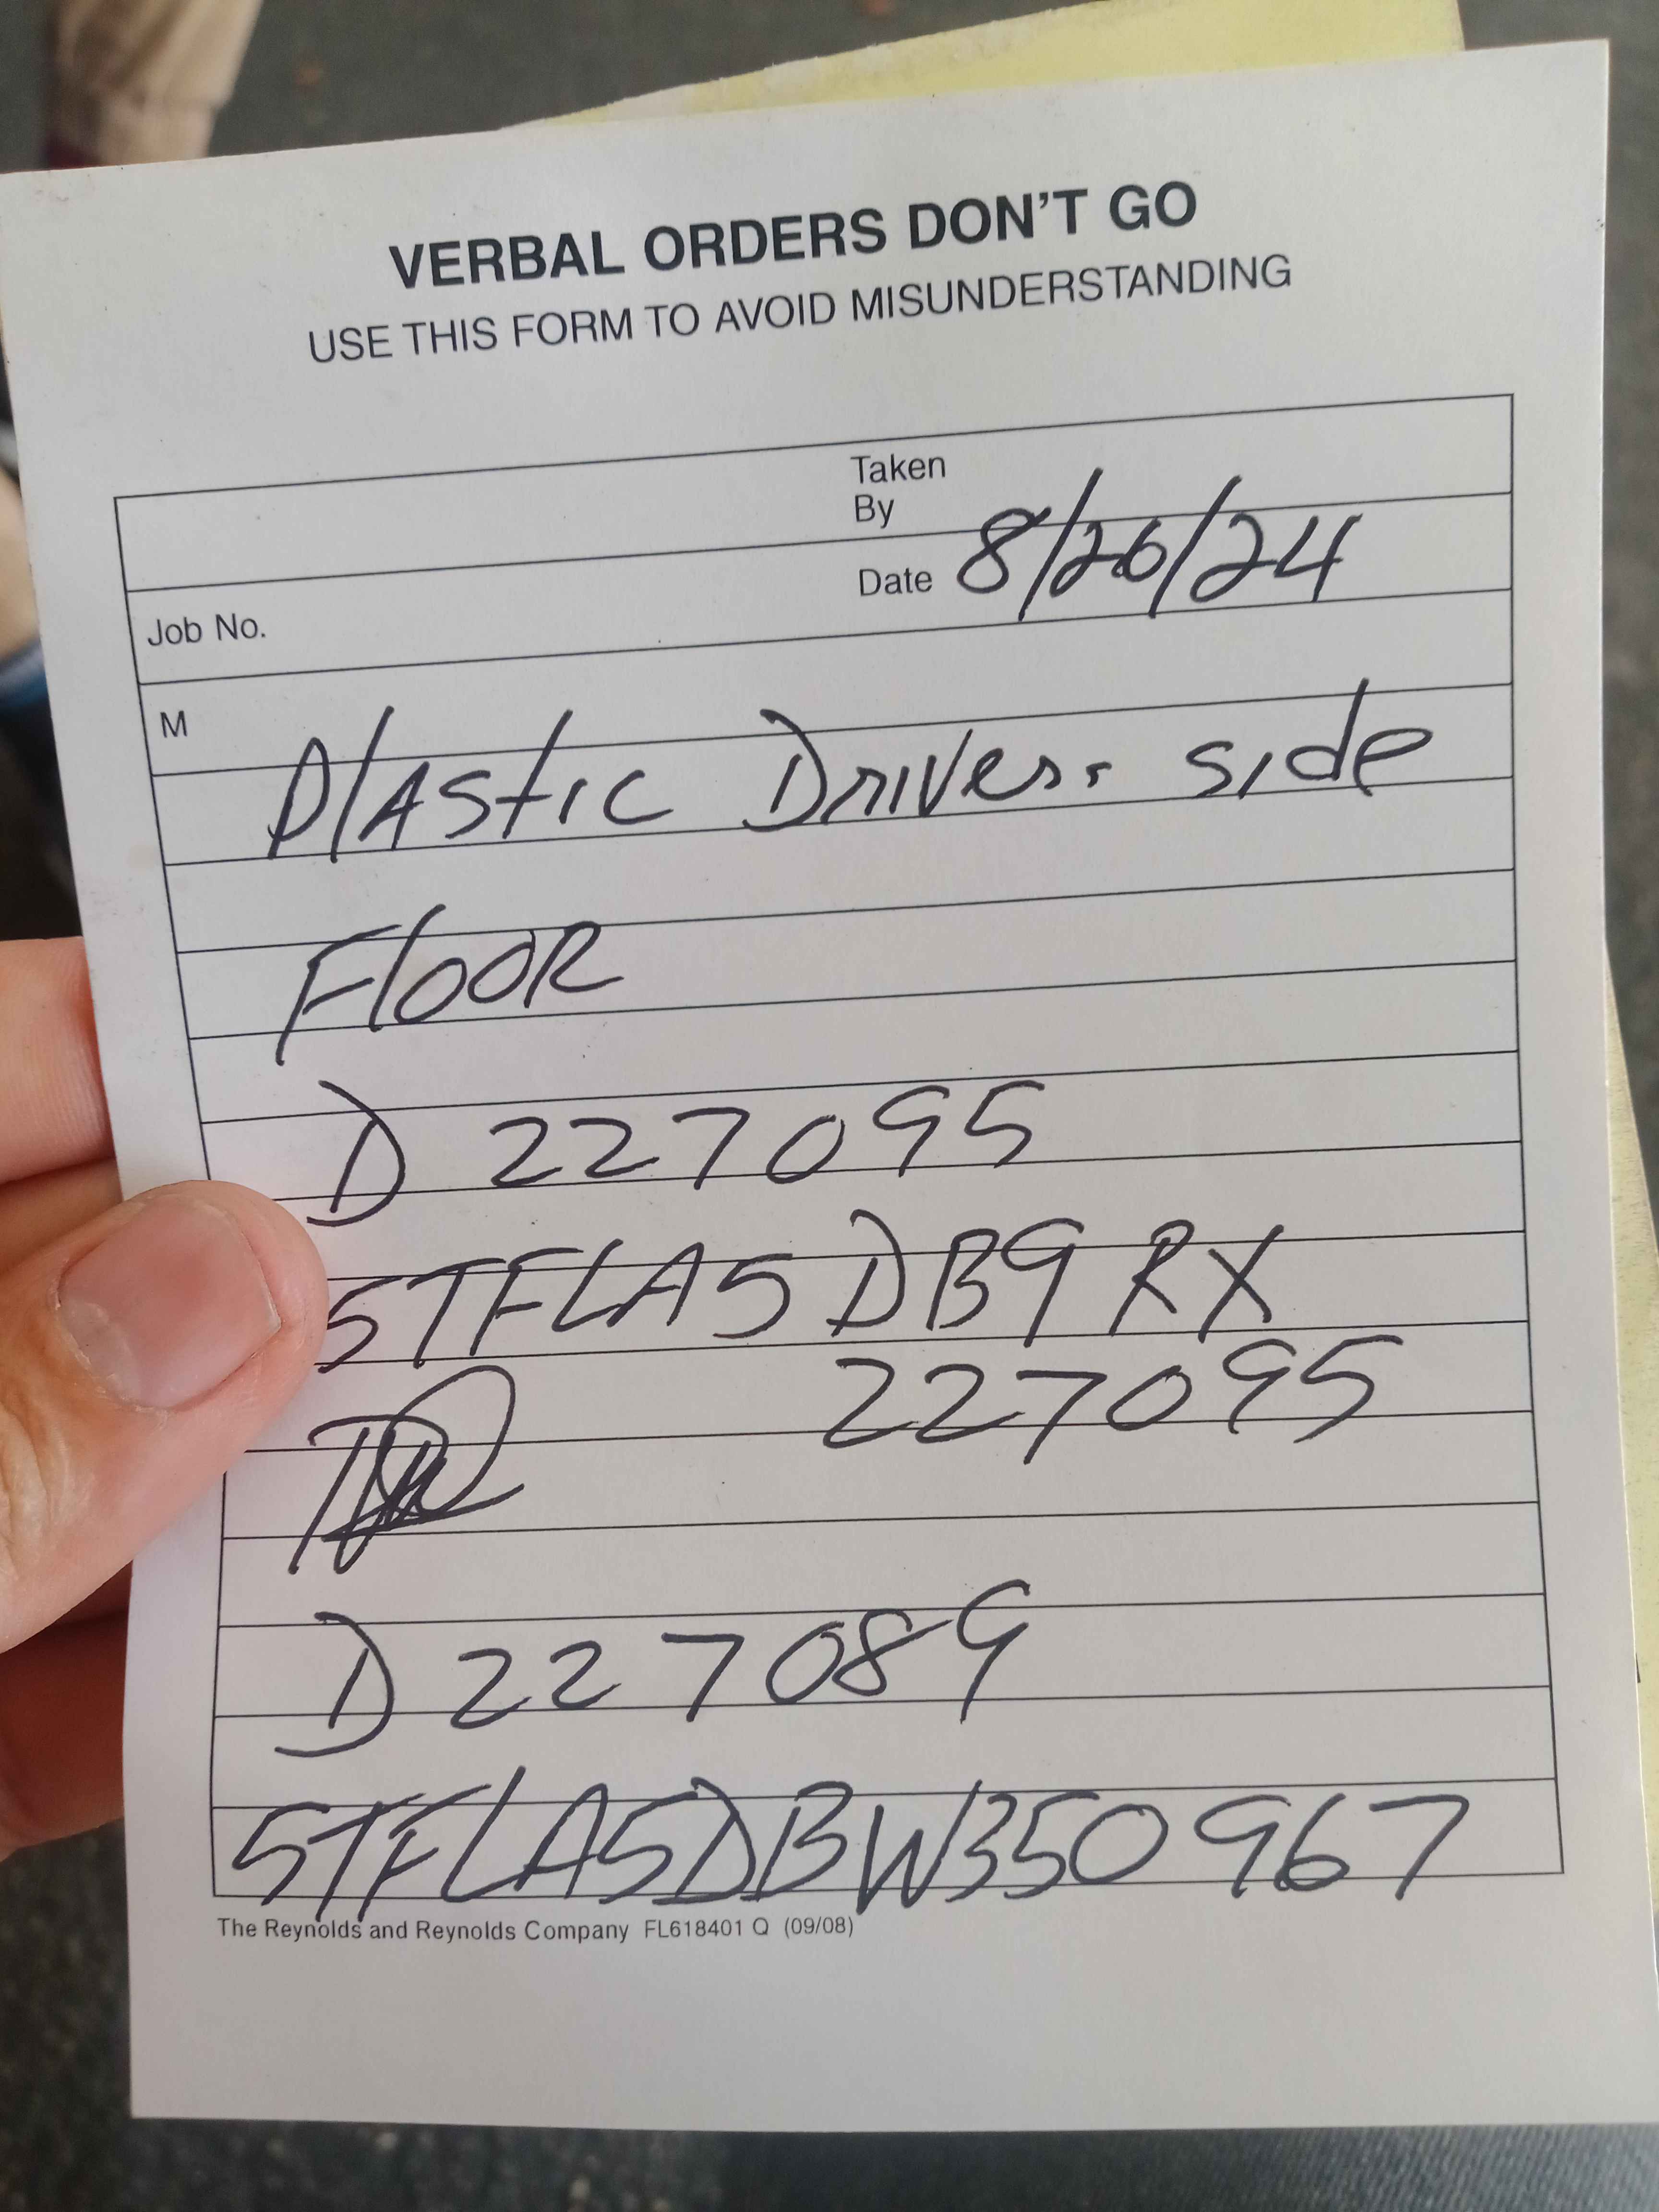 VERBAL ORDERS DON'T GO
USE THIS FORM TO AVOID MISUNDERSTANDING
Taken
By
Date 8/26/24
Job No.
M
Plastic Driver. side
Floor
D 227095
5TFLA5DB9RX
227095
D 227089
5TFLA5DBWB350967
The Reynolds and Reynolds Company FL618401 Q (09/08)